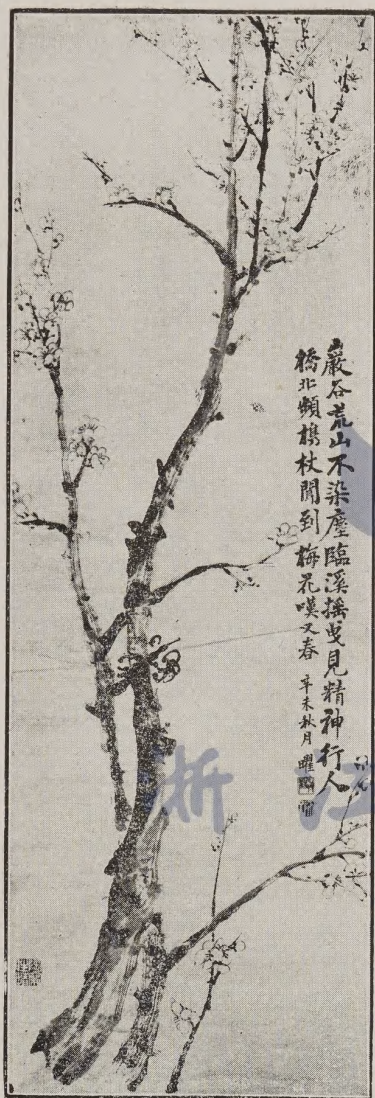 巖谷荒山不染塵臨溪搖曳見精神行人
橋北頻携杖開到梅花嘆又春 辛未秋月 曜
浙江